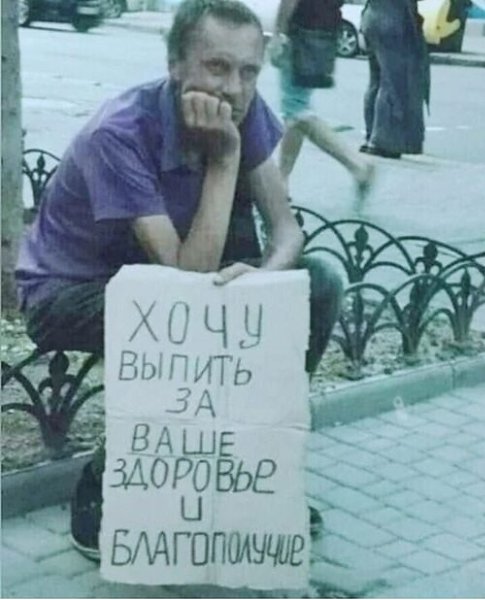 ХОЧУ
ВЫПИТЬ
ЗА
ВАШЕ
ЗДОРОВЬЕ
И
БЛАГОПОЛУЧИЕ